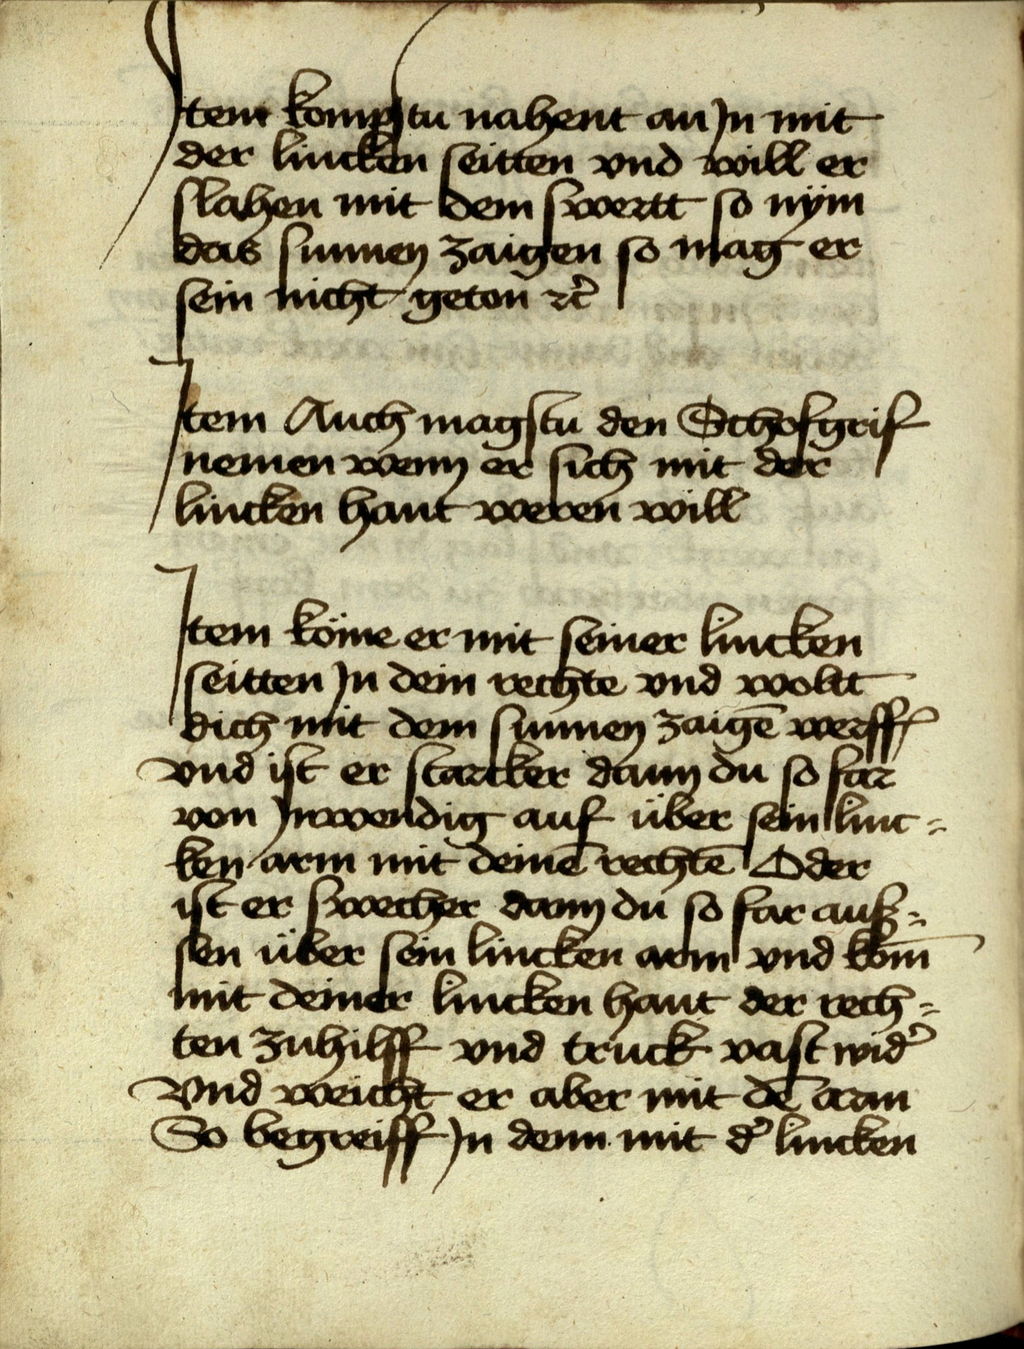 Item kompstu nahent an In mit
der lincken seitten vnd will er
slahen mit dem swertt so nÿm
das sunnen zaigen so mag er
sein nicht geton ꝛc̃
Item Auch magstu den Schofgrif
nemen wenn er sich mit der
lincken hant weren will
Item köme er mit seiner lincken
seitten In dein rechte vnd woltt
dich mit dem sunnen zaigē werffñ
vnd ist er starcker dann du so far
von Inwendig auf über sein linc=
ken arm mit deinē rechtē Oder
ist er swecher dann du so far auß=
sen über sein lincken arm vnd kom̄
mit deiner lincken hant der rech=
ten zuhilff vnd truck vast wid᷑
Vnd weicht er aber mit dē arm
So begreiff In denn mit d᷑ lincken